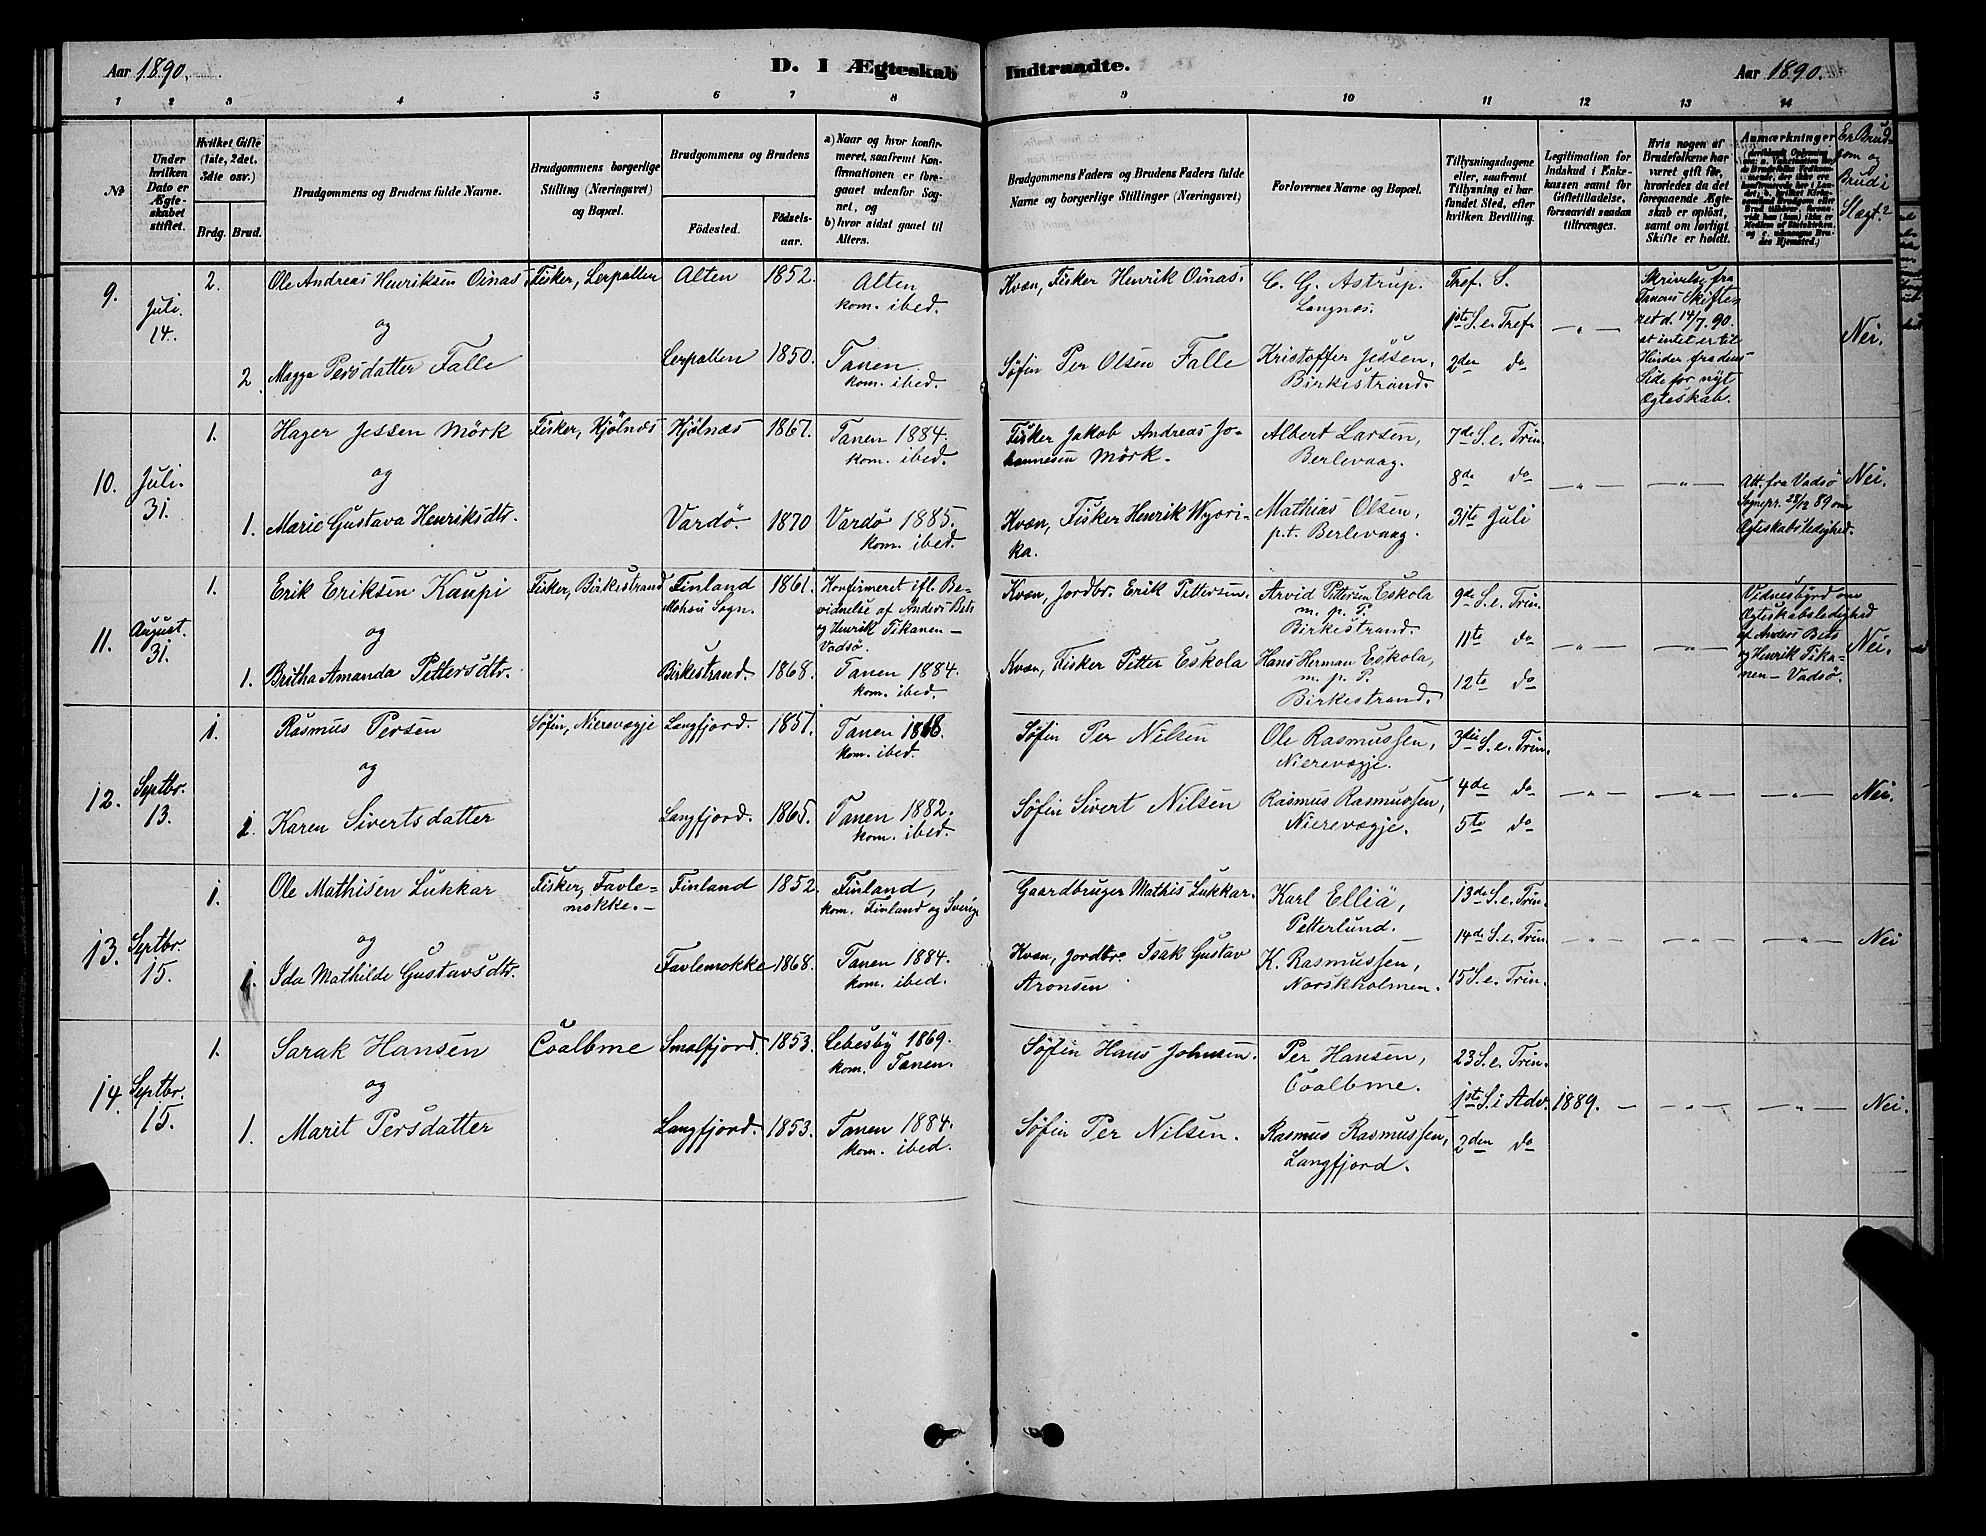 Aar 1890.
D. I Ægteskab Indtraadte.
Aar 1890.
1 2 3 4 5 6 7 8 9 10 11 12 13 14
No
Under hvilken Dato er Ægteskabet stiftet.
Hvilket Gifte (1ste, 2det, 3die osv.)
Brdg. Brud.
Brudgommens og Brudens fulde Navne.
Brudgommens borgerlige Stilling (Næringsvei) og Bopæl.
Brudgommens og Brudens
Fødested.
Fødselsaar.
a) Naar og hvor konfirmeret, saafremt Konfirmationen er foregaaet udenfor Sognet, og
b) hvor sidst gaaet til Alters.
Brudgommens Faders og Brudens Faders fulde Navne og borgerlige Stillinger (Næringsvei)
Forlovernes Navne og Bopæl.
Tillysningsdagene eller, saafremt Tillysning ei har fundet Sted, efter hvilken Bevilling.
Legitimation for Indskud i Enkekassen samt for Giftetilladelse, forsaavidt saadan tiltrænges.
Hvis nogen af Brudefolkene har været gift før, hvorledes da det foregaaende Ægteskab er opløst, samt om lovligt Skifte er holdt.
Anmærkninger
Er Brudgom og Brud i Slægt?
9. Juli 14.
2. Ole Andreas Henriksen Oinas
Fisker, Lerpollen
Alten 1852.
Alten
kom. ibed.
Kvæn, Fisker Henrik Oinas.
C. G. Astrup.
Langnæs.
Tref. S.
1ste S. e. Tref.
og
2 Magga Persdatter Falle
Lerpollen 1850.
Tanen.
kom. ibed.
Søfin Per Olsen Falle
Kristoffer Jessen,
Birkestrand.
2den do
Skrivelse fra
Tanens Skifteret d. 14/7. 90.
at intet er til
Hinder fra dens
Side for nyt
Ægteskab.
Nei.
10. Juli. 31.
1. Hager Jessen Mörk
Fisker, Kjölnæs
Kjölnæs 1867.
Tanen 1884.
kom. ibed.
Fisker Jakob Andreas Johannesen Mörk.
Albert Larsen,
Berlevaag.
7de S. e. Trin.
8de do
og
1. Marie Gustava Henriksdtr.
Vardö. 1870
Vardö 1885.
kom. ibed.
Kvæn, Fisker Henrik Wyörika.
Mathias Olsen,
p.t. Berlevaag.
31te Juli
Att. fra Vadsö
Sognepr. 28/12 89 om
Ægteskabsledighed.
Nei.
11. August. 31.
1. Erik Eriksen Kaupi
Fisker, Birkestrand
Finland 1861.
Sogn.
Konfirmeret ifl. Bevidnelse af Anders Bets
og Henrik Tikanen –
Vadsö.
Kvæn, Jordbr. Erik Pettersen.
Arvid Pettersen Eskola
m. p. P.
Birkestrand.
9de S. e. Trin.
11te do
og
1. Britha Amanda Pettersdtr.
Birkestrand. 1868.
Tanen 1884.
kom. ibed.
Kvæn, Fisker Petter Eskola
Hans Herman Eskola,
m. p. P.
Birkestrand.
12te do
Vidnesbyrd om
Ægteskabsledighed
af Anders Bets
og Henrik Tikanen – Vadsö.
Nei.
12. Septbr. 13.
1. Rasmus Persen
Søfin, Nierevægje
Langfjord. 1851.
Tanen 1868.
kom. ibed.
Søfin Per Nilsen
Ole Rasmussen,
Nierevægje.
3die S. e. Trin.
4de do
og
1. Karen Sivertsdatter
Langfjord. 1865.
Tanen 1882.
kom. ibed.
Søfin Sivert Nilsen
Rasmus Rasmussen,
Nierevægje.
5te do
Nei.
13. Septbr. 15.
1. Ole Mathisen Lukkar
Fisker, Favlemokke. –
Finland 1852.
Finland,
kom. Finland og Sverig
Gaardbruger Mathis Lukkar.
Karl Elliä,
Petterlund.
13de S. e. Trin.
14de S. e. Trin
og
1. Ida Mathilde Gustavsdtr.
Favlemokke 1868.
Tanen 1884.
kom. ibed.
Kvæn, Jordbr. Isak Gustav
Aronsen
K. Rasmussen,
Norskholmen.
15 S. e. Trin.
Nei
14. Septbr. 15.
1. Sarak Hansen
Coalbme
Smalfjord. 1853.
Lebesby 1869.
kom. Tanen.
Søfin Hans Johnsen.
Per Hansen,
Coalbme.
23 S. e. Trin.
1ste S. i Adv. 1889.
og
1. Marit Persdatter
Langfjord. 1853.
Tanen 1884.
kom. ibed.
Søfin Per Nilsen.
Rasmus Rasmussen,
Langfjord.
2den do
Nei.